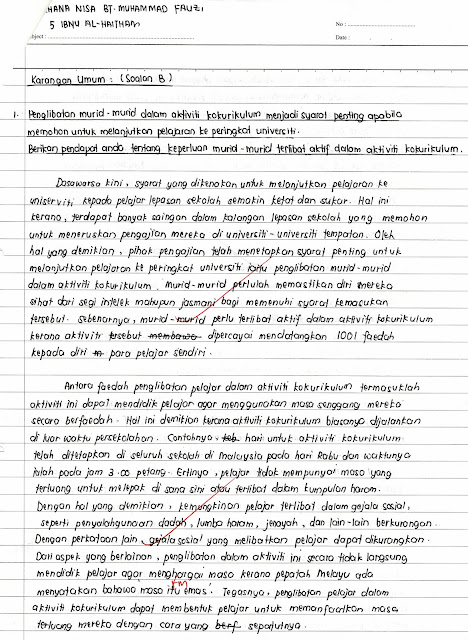 HANA NISA BT. MUHAMMAD FAUZI
5 IBNU AL-HAITHAM
No :
bject :
Date :
Karangan Umum : (Soalan B)
1. Penglibatan murid-murid dalam aktiviti kokurikulum menjadi syarat penting apabila
memohon untuk melanjutkan pelajaran ke peringkat universiti.
Berikan pendapat anda tentang keperluan murid-murid terlibat aktif dalam aktiviti kokurikulum.
Dasawarsa kini, syarat yang dikenakan untuk melanjutkan pelajaran ke
uniserviti kepada pelajar lepasan sekolah semakin ketat dan sukar. Hal ini
kerana, terdapat banyak saingan dalam kalangan lepasan sekolah yang memohon
untuk meneruskan pengajian mereka di universiti-universiti tempatan. Oleh
hal yang demikian, pihak pengajian telah menetapkan syarat penting untuk
melanjutkan pelajaran ke peringkat universiti iaitu penglibatan murid-murid
dalam aktiviti kokurikulum. Murid-murid perlulah memastikan diri mereka
sihat dari segi intelek mahupun jasmani bagi memenuhi syarat kemasukan
tersebut. Sebenarnya, murid-murid perlu terlibat aktif dalam aktiviti kokurikulum
kerana aktiviti tersebut membawa dipercayai mendatangkan 1001 faedah
kepada diri m para pelajar sendiri.
Antara faedah penglibatan pelajar dalam aktiviti kokurikulum termasuklah
aktiviti ini dapat mendidik pelajar agar menggunakan masa senggang mereka
secara berfaedah. Hal ini demikian kerana aktiviti kokurikulum biasanya dijalankan
di luar waktu persekolahan. Contohnya, hari untuk aktiviti kokurikulum
telah ditetapkan di seluruh sekolah di Malaysia pada hari Rabu dan waktunya
ialah pada jam 3.00 petang. Ertinya, pelajar tidak mempunyai masa yang
terluang untuk melepak di sana sini atau terlibat dalam kumpulan haram.
Dengan hal yang demikian, kemungkinan pelajar terlibat dalam gejala sosial,
seperti penyalahgunaan dadah, lumba haram, jenayah, dan lain-lain berkurangan.
Dengan perkataan lain, gejala sosial yang melibatkan pelajar dapat dikurangkan.
Dari aspek yang berlainan, penglibatan dalam aktiviti ini secara tidak langsung
mendidik pelajar agar menghargai masa kerana pepatah Melayu ada
menyatakan bahawa masa itu emas. Tegasnya, penglibatan pelajar dalam
aktiviti kokurikulum dapat membentuk pelajar untuk memanfaatkan masa
terluang mereka dengan cara yang sepatutnya.